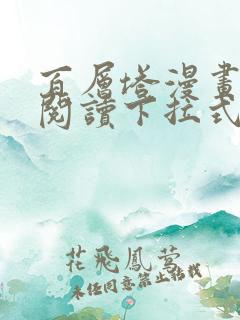 百層塔漫畫
閱讀下拉式
花飛鳳夢
未经同意禁止转载